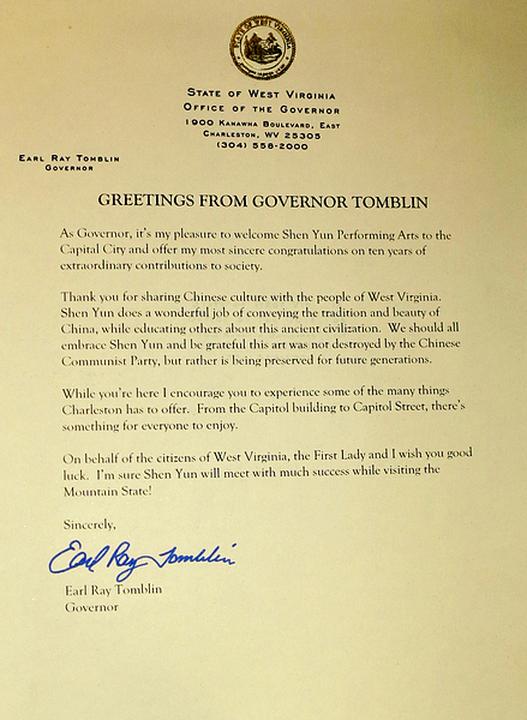 STATE OF WEST VIRGINIA
STATE OF WEST VIRGINIA
OFFICE OF THE GOVERNOR
1900 KANAWHA BOULEVARD, EAST
CHARLESTON, WV 25305
(304) 558-2000
EARL RAY TOMBLIN
GOVERNOR
GREETINGS FROM GOVERNOR TOMBLIN
As Governor, it's my pleasure to welcome Shen Yun Performing Arts to the
Capital City and offer my most sincere congratulations on ten years of
extraordinary contributions to society.
Thank you for sharing Chinese culture with the people of West Virginia.
Shen Yun does a wonderful job of conveying the tradition and beauty of
China, while educating others about this ancient civilization. We should all
embrace Shen Yun and be grateful this art was not destroyed by the Chinese
Communist Party, but rather is being preserved for future generations.
While you're here I encourage you to experience some of the many things
Charleston has to offer. From the Capitol building to Capitol Street, there's
something for everyone to enjoy.
On behalf of the citizens of West Virginia, the First Lady and I wish you good
luck. I'm sure Shen Yun will meet with much success while visiting the
Mountain State!
Sincerely,
Earl Ray Tomblin
Earl Ray Tomblin
Governor